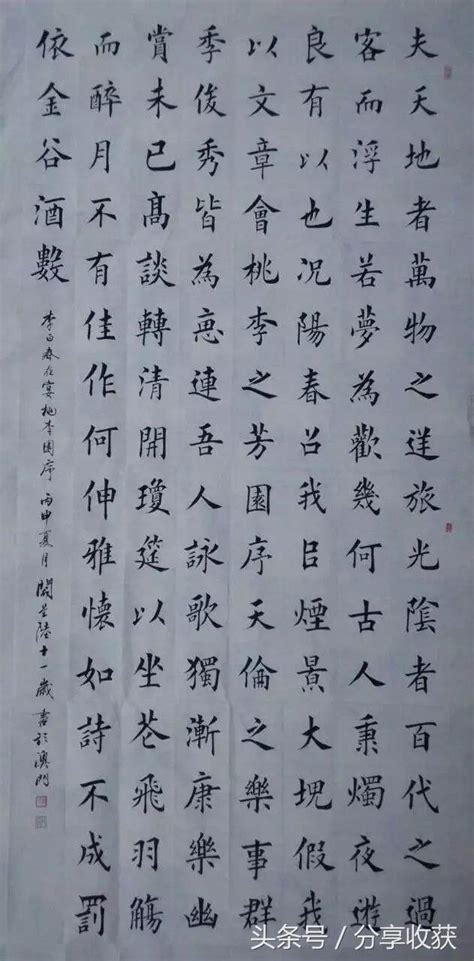 夫天地者萬物之逆旅光陰者百代之過
客而浮生若夢為歡幾何古人秉燭夜遊
良有以也况陽春召我㠯煙景大塊假我
以文章會桃李之芳園序天倫之樂事群
季俊秀皆為惠連吾人詠歌獨漸康樂幽
賞未已高談轉清開瓊筵以坐花飛羽觴
而醉月不有佳作何伸雅懷如詩不成罰
依金谷酒數
李白春夜宴桃李園序 丙申夏月 陸十一歲書於澳門
头条号／分享收获